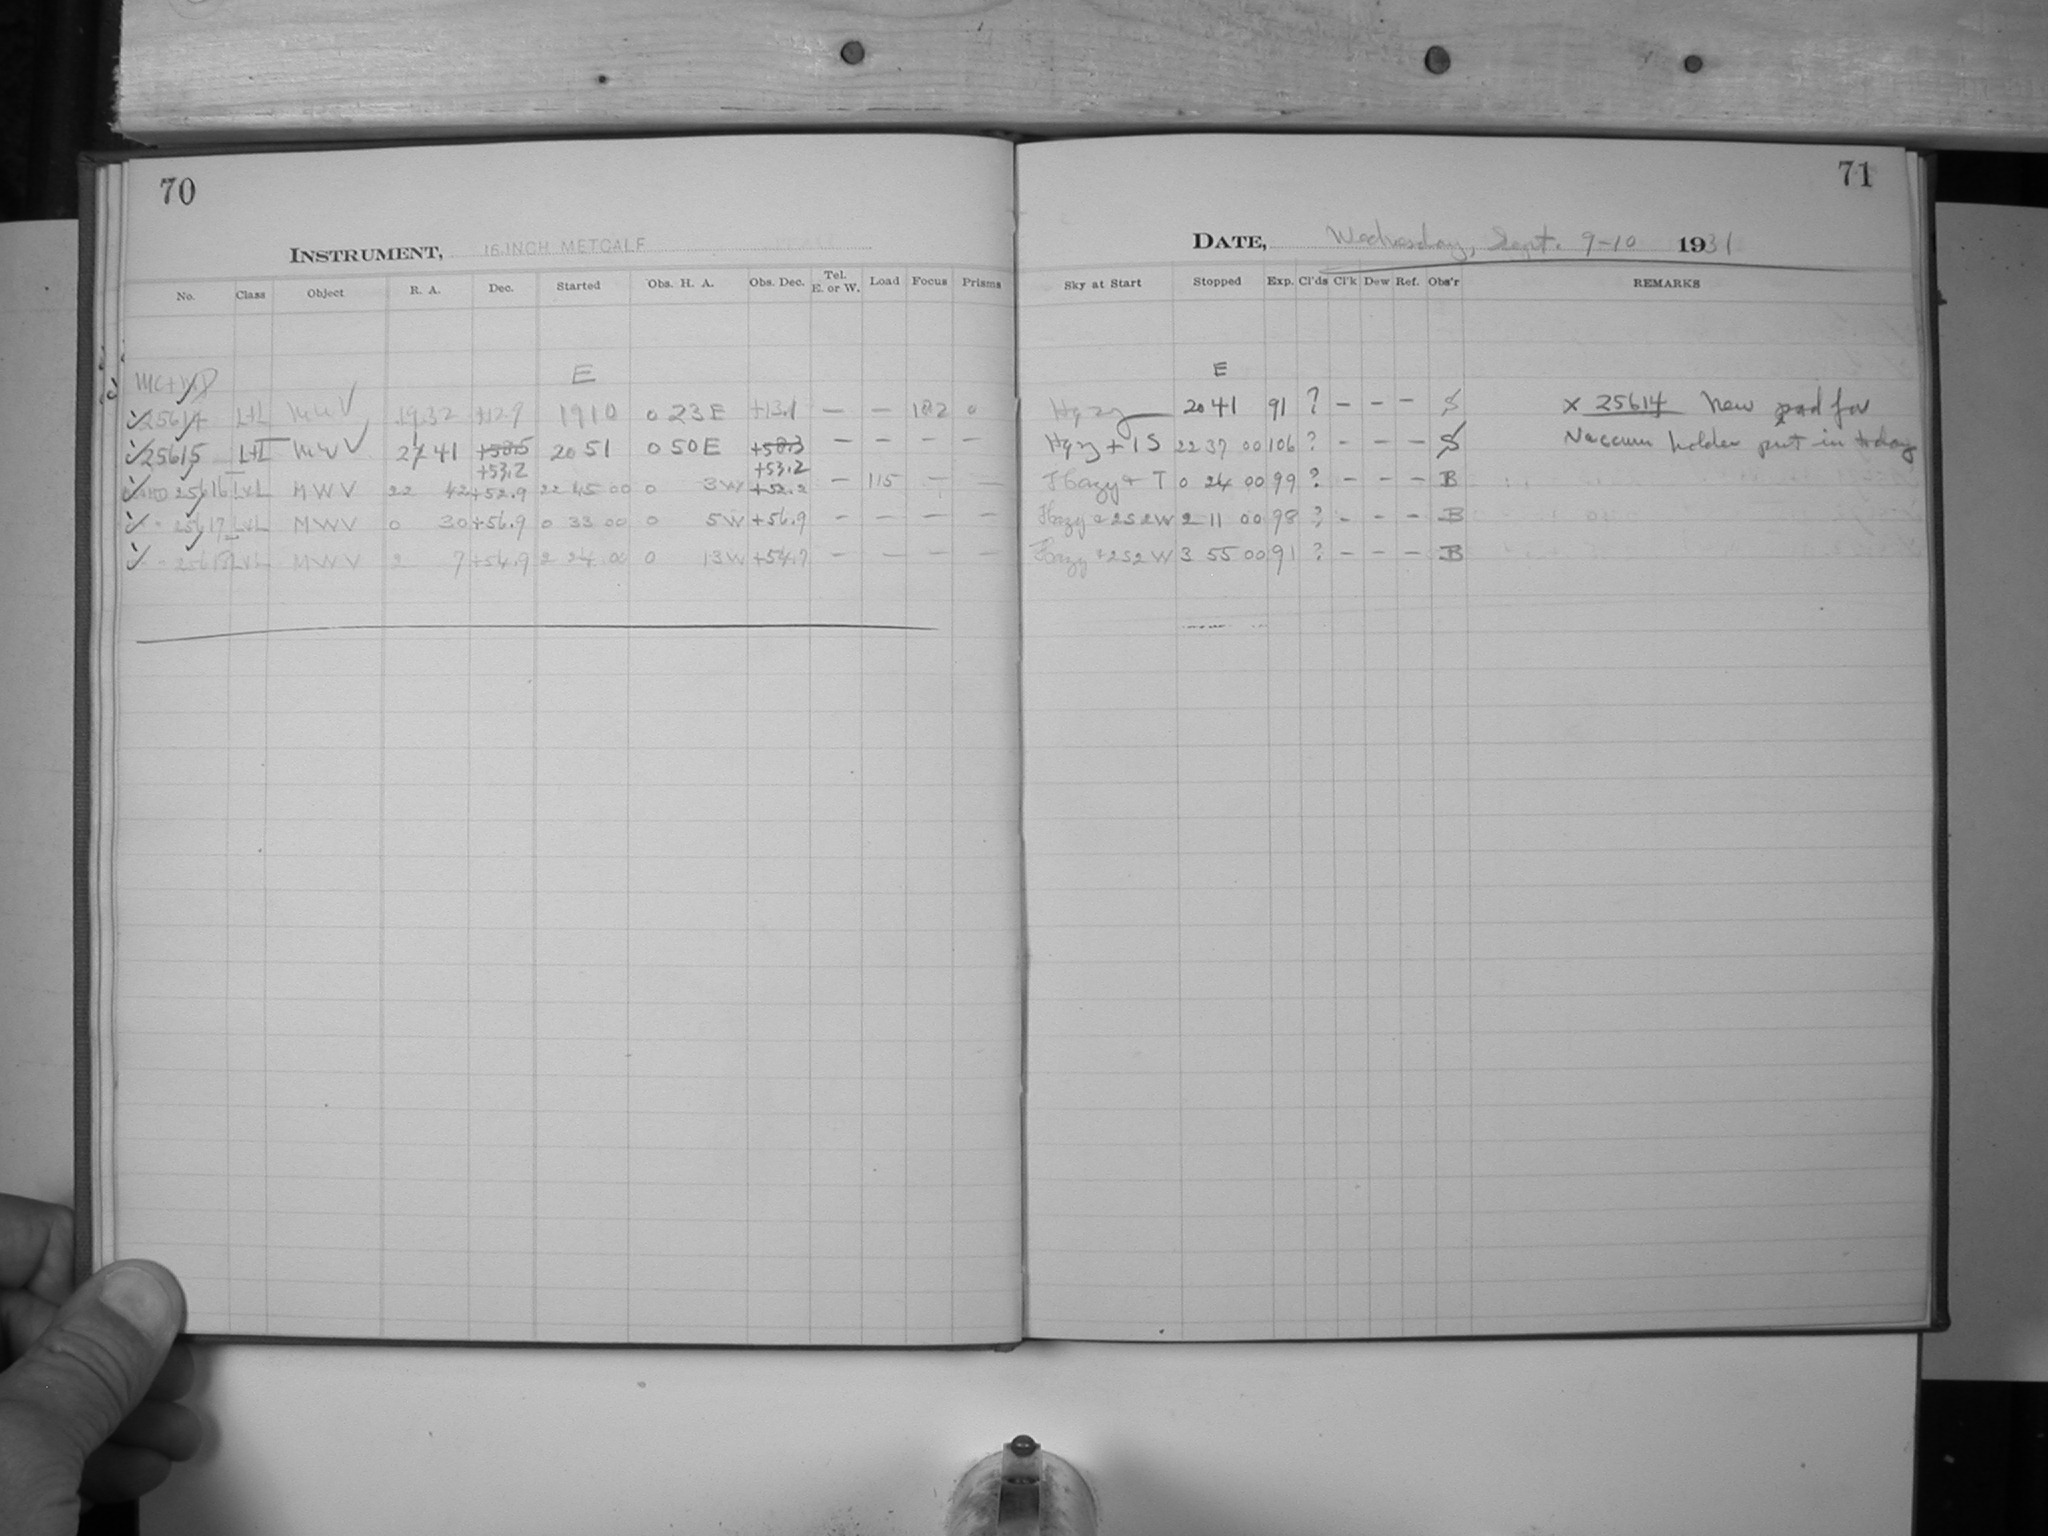 70
INSTRUMENT, 16 INCH METCALF
No. Class Object R. A. Dec. Started Obs. H. A. Obs. Dec. Tel. E. or W. Load Focus Prisms
E
25614 L+L MWV 1932 +12.9 1910 0 23 E +13.1 — — 102 0
25615 L+I MWV 41 +58.5 20 51 0 50 E +58.3 — — — —
+53.2 +53.2
25616 LvL MWV 22 42 +52.9 22 45 00 0 3W +52.2 — 115 — —
" 25617 LvL MWV 0 30 +56.9 0 33 00 0 5W +56.9 — — — —
" 25618 LvL MWV 2 7 +54.9 2 24 00 0 13W +54.7 — — — —
71
DATE, Wednesday, Sept. 9-10 1931
Sky at Start Stopped Exp. Cl'ds Cl'k Dew Ref. Obs'r REMARKS
E
Hazy 20 41 91 ? — — — S x 25614 New pad for
Hazy + 1S 22 37 00 106 ? — — — S Vaccum holder put in today
Hazy + T 0 24 00 99 ? — — — B
Hazy + 2S2W 2 11 00 98 ? — — — B
Hazy + 2S2W 3 55 00 91 ? — — — B